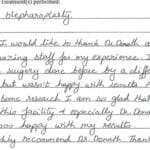 Treatment(s) performed:
blepharoplasty.
I would like to thank Dr. Donath a
azing staff for my experience. I
surgery done before by a diffe
but wasn't happy with results
some research I am so glad that
this facility & especially Dr. Dona
ooo happy with my results.
hly recommend Dr. Donath. Thank